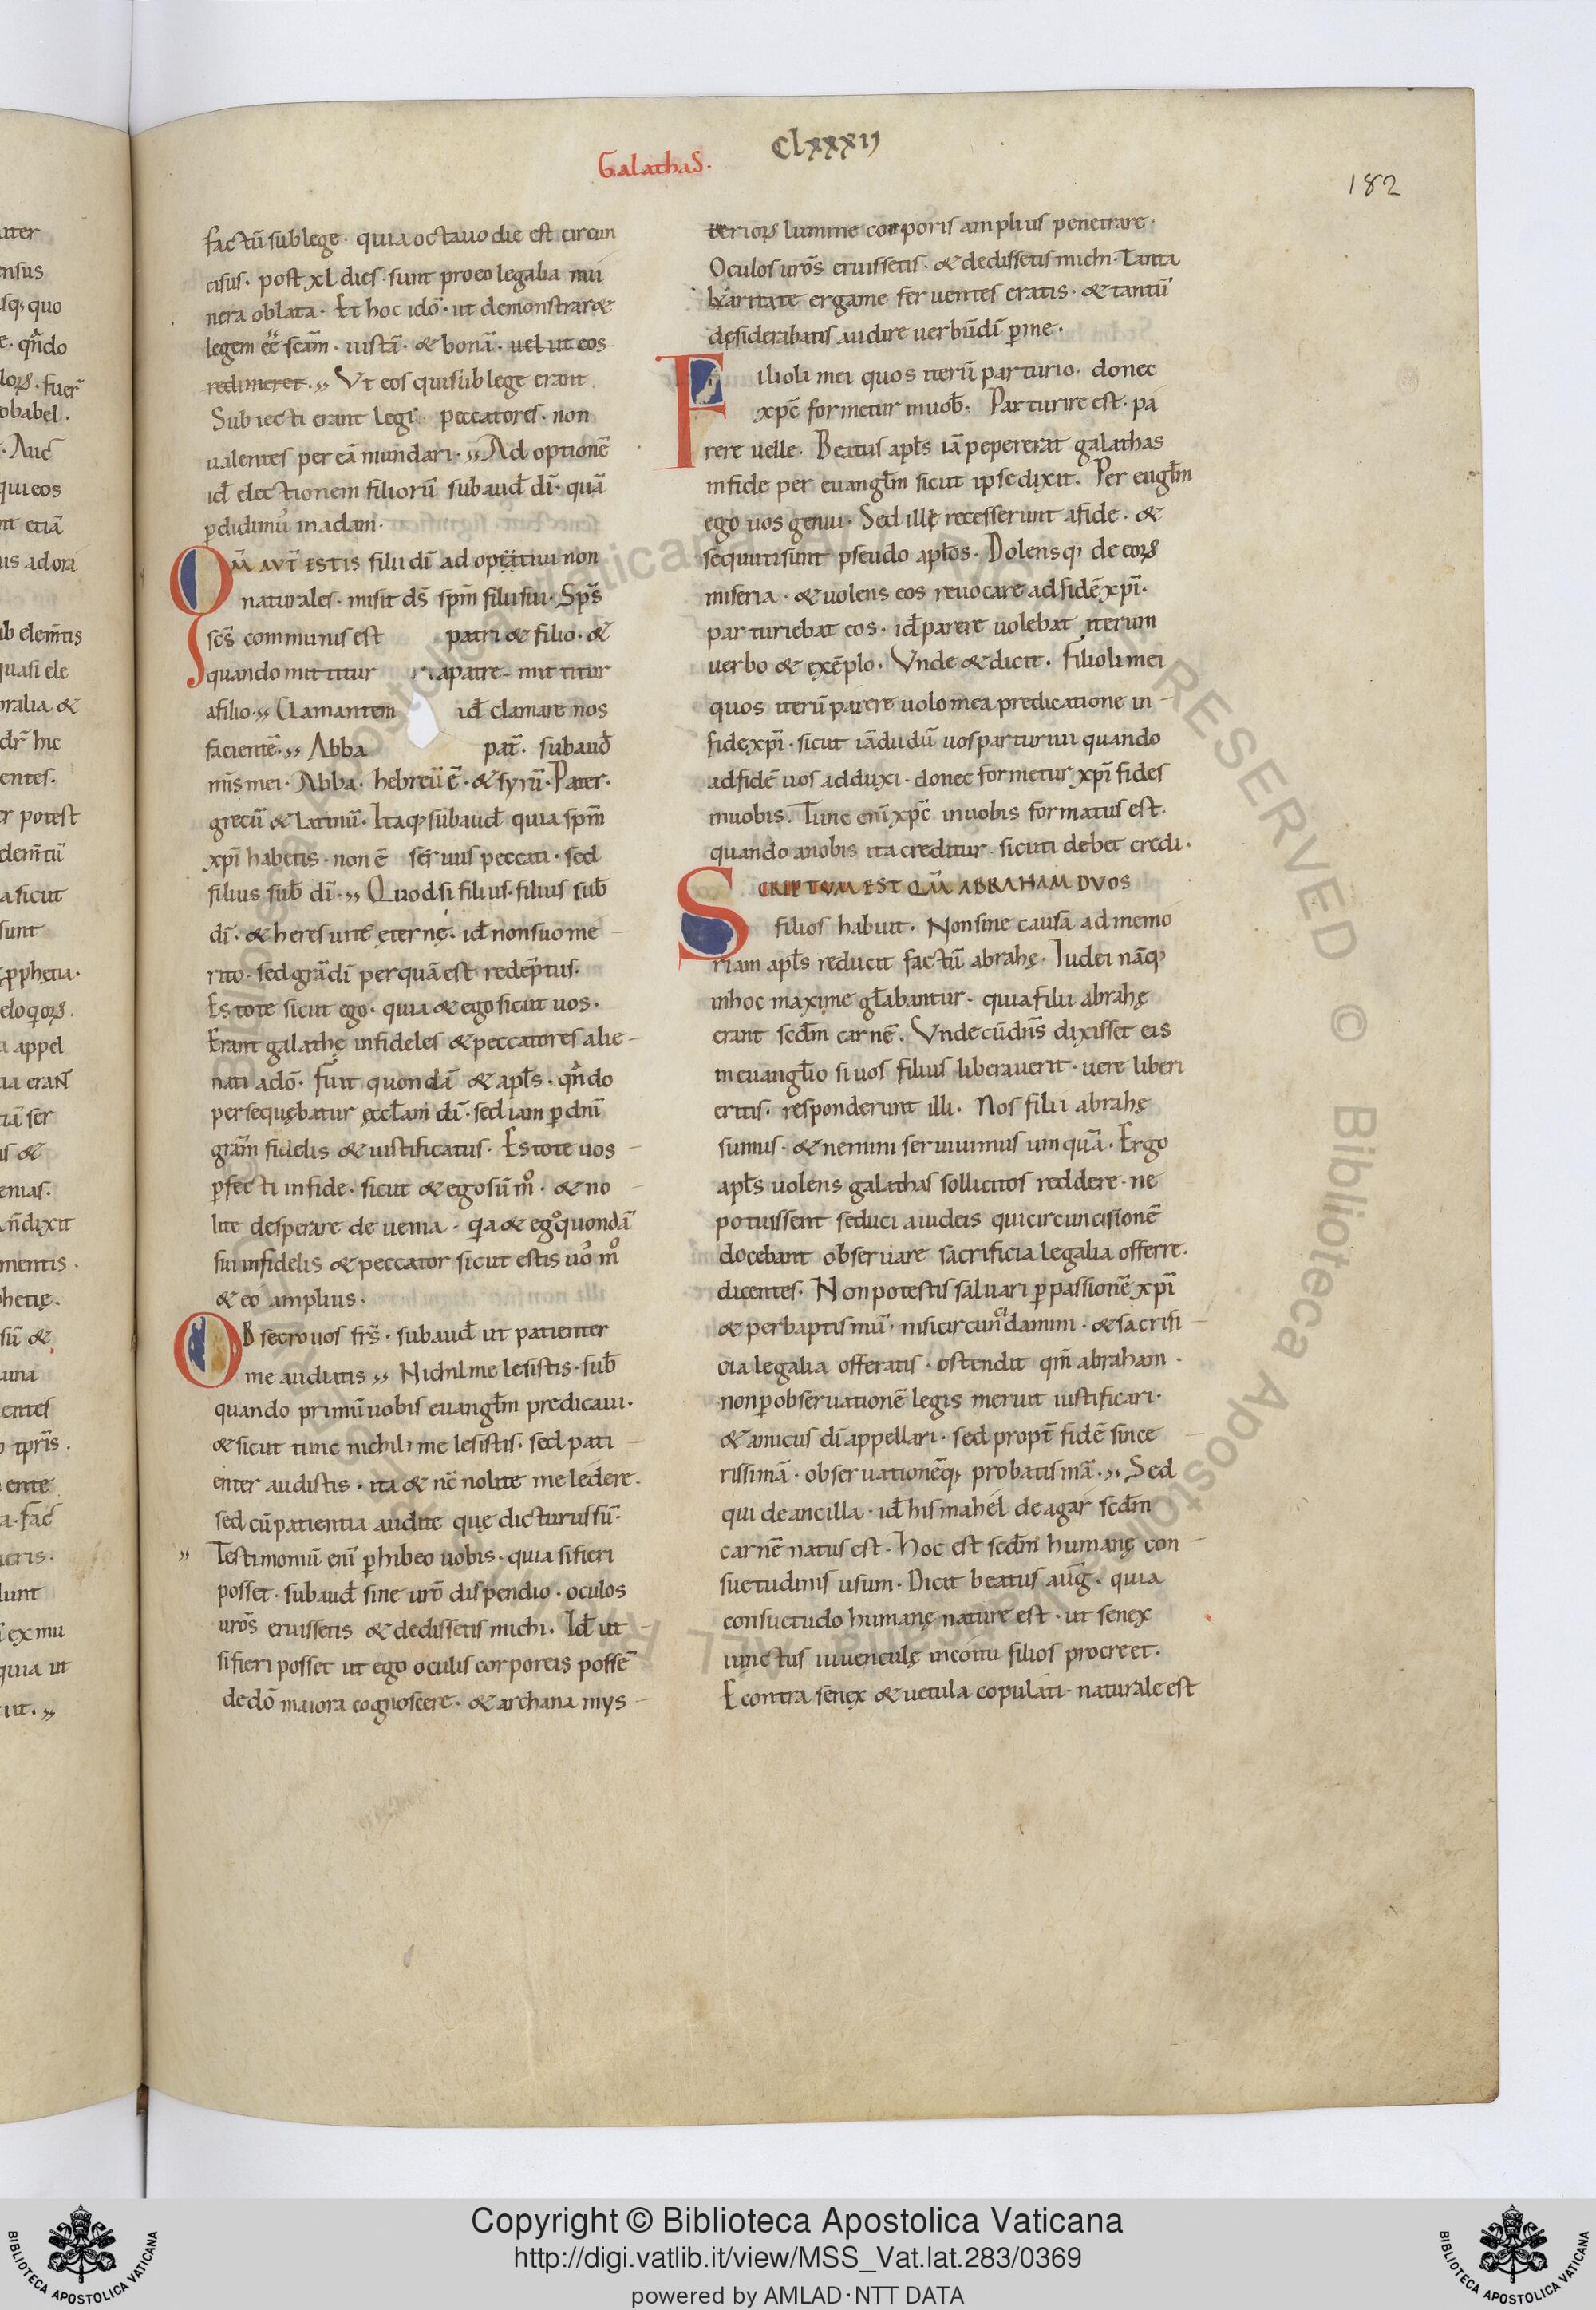 Galathas.
Clxxxij
182
factū sublege· quia octauo die est circun
cisus· post xl dies· sunt pro eo legalia mu
nera oblata· Et hoc idō· ut demonstrar&
legem eē scām· iustā· & bonā· uel ut eos
redimeret·,, Vt eos qui sub lege erant
Subiecti erant legi peccatores· non
ualentes per eā mundari·,, Adoptionē
id electionem filiorū subaud dī· quā
pdidimus in adam·
Qm̄ AVT̄ ESTIS filii dī adoptitiui non
naturales· misit ds̄ spm̄ filii sui· Sps̄
scs̄ communis est patri & filio· &
quando mittitur a patre mittitur
a filio·,, Clamantem id clamare nos
facientē·,, Abba pat̄· subaud
ms̄ mei· Abba· hebreū ē· & syrū· Pater·
grecū & latinū· Itaq; subaud quia spm̄
xp̄i habetis· non ē seruus peccati· sed
filius sub dī·,, Quod si filius· filius sub
dī· & heres uitę eternę· id non suo me
rito· sed gra dī per quā est redēptus·
Estote sicut ego· quia & ego sicut uos·
Erant galathę infideles & peccatores alie
nati a dō· fuit quondā & apłs· qn̄do
persequębatur ęccłam dī· sed iam p dnī
grām fidelis & iustificatus· Estote uos
pfecti in fide· sicut & ego sū mo· & no
lite desperare de uenia· qia & ego quondā
fui infidelis & peccator sicut estis uos mo
& eo amplius·
OBsecro uos frs̄· subaud ut patienter
me audiatis,, Nichil me lesistis· sub
quando primū uobis euangłm predicaui·
& sicut tunc nichil me lesistis· sed pati
enter audistis· ita & nc̄ nolite me ledere·
sed cū patientia audite quę dicturus sū·
,, Testimoniū enī phibeo uobis· quia si fieri
posset· subaud sine urō dispendio· oculos
uros̄ eruissetis & dedissetis michi· Id ut
si fieri posset ut ego oculis corporeis possē
de dō maiora cognoscere· & archana mys
teriorꝝ lumine corporis amplius penetrare·
Oculos uros̄ eruissetis· & dedissetis michi· Tanta
karitate erga me feruentes eratis· & tantū
desiderabatis audire uerbū dī p me·
Filioli mei quos iterū parturio· donec
xpc̄ formetur in uob· Parturire est· pa
rere uelle· Beatus apłs iā pepererat galathas
in fide per euangłm sicut ipse dixit· Per eugłm
ego uos genui· Sed illę recesserunt a fide· &
sequuti sunt pseudo apłos· Dolensq; de eorꝝ
miseria· & uolens eos reuocare ad fidē xp̄i·
parturiebat eos· id parere uolebat iterum
uerbo & exēplo· Vnde & dicit· Filioli mei
quos iterū parere uolo mea predicatione in
fide xp̄i· sicut iādudū uos parturiui quando
ad fidē uos adduxi· donec formetur xp̄i fides
in uobis· Tunc enī xpc̄ in uobis formatus est·
quando a nobis ita creditur sicuti debet credi·
SCRIPTVM EST QM̄ ABRAHAM DVOS
filios habuit· Non sine causa ad memo
riam apłs reducit factū abrahę· Iudei nāq;
in hoc maxime głabantur· quia filii abrahę
erant scdm̄ carnē· Vnde cū dns̄ dixisset eis
in euangłio si uos filius liberauerit· uere liberi
eritis· responderunt illi· Nos filii abrahę
sumus· & nemini seruiuimus umquā· Ergo
apłs uolens galathas sollicitos reddere· ne
potuissent seduci a iudeis qui circuncisionē
docebant obseruare sacrificia legalia offerre·
dicentes· Non potestis saluari p passionē xp̄i
& per baptismū· nisi circuncidamini· & sacrifi
cia legalia offeratis· ostendit qm̄ abraham·
non p obseruationē legis meruit iustificari·
& amicus dī appellari· sed propt̄ fidē since
rissimā· obseruationēq; probatismā·,, Sed
qui de ancilla· id hismahel de agar scdm̄
carnē natus est· Hoc est scdm̄ humanę con
suetudinis usum· Dicit beatus auḡ· quia
consuetudo humanę nature est· ut senex
iunctus iuuenculę in coitu filios procreet·
E contra senex & uetula copulati· naturale est
Copyright © Biblioteca Apostolica Vaticana
http://digi.vatlib.it/view/MSS_Vat.lat.283/0369
powered by AMLAD·NTT DATA
BIBLIOTECA APOSTOLICA VATICANA
BIBLIOTECA APOSTOLICA VATICANA